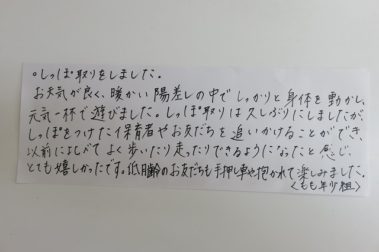 。しっぽ取りをしました。
お天気が良く、暖かい陽差しの中でしっかりと身体を動かし、
元気一杯で遊びました。しっぽ取りは久しぶりにしましたが、
しっぽをつけた保育者やお友だちを追いかけることができ、
以前に比べてよく歩いたり走ったりできるようになったと感じ、
とても嬉しかったです。低月齢のお友だちも手押し車や抱かれて楽しみました。
＜もも年少組＞